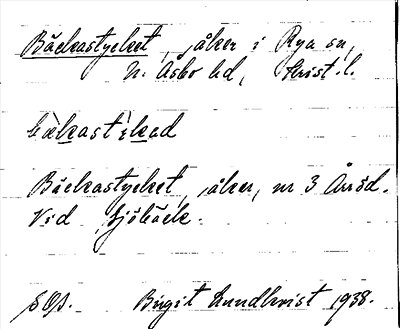 Bäckastycket, åker i Rya sn,
N. Åsbo hd, Krist. l.
Bäckastycket, åker, nr 3 Årröd.
Vid Sjöbäck.
Birgit Lundkvist 1938.